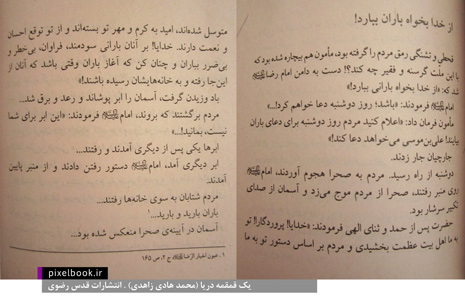 از خدا بخواه باران ببارد!
قحطی و تشنگی رمق مردم را گرفته بود، مأمون هم بیچاره شده بود که
با این ملّت گرسنه و فقیر چه کند؟! دست به دامن امام رضا شد
که: «از خدا بخواه بارانی ببارد!»
امام فرمودند: «باشد! روز دوشنبه دعا خواهم کرد!...»
مأمون فرمان داد: «اعلام کنید مردم روز دوشنبه برای دعای باران
بیایند! علی‌بن‌موسی می‌خواهد دعا کند!»
جارچیان جار زدند.
دوشنبه از راه رسید. مردم به صحرا هجوم آوردند، امام
روی منبر رفتند، صحرا از مردم موج می‌زد و آسمان از صدای
تکبیر سرشار بود.
حضرت پس از حمد و ثنای الهی فرمودند: «خدایا! پروردگارا! تو
به ما اهل بیت عظمت بخشیدی و مردم بر اساس دستور تو به ما
متوسل شده‌اند، امید به کرم و مهر تو بسته‌اند و از تو توقع احسان
و نعمت دارند. خدایا! بر آنان بارانی سودمند، فراوان، بی‌خطر و
بی‌ضرر بباران و چنان کن که آغاز باران وقتی باشد که آنان از
این‌جا رفته و به خانه‌هایشان رسیده باشند!»
باد وزیدن گرفت، آسمان را ابر پوشاند و رعد و برق شد...
مردم برگشتند که بروند، امام فرمودند: «این ابر برای شما
نیست، بمانید!...»
ابرها یکی پس از دیگری آمدند و رفتند...
ابر دیگری آمد، امام دستور رفتن دادند و از منبر پایین
آمدند.
مردم شتابان به سوی خانه‌ها رفتند...
باران بارید و بارید...¹
آسمان در آیینه‌ی صحرا منعکس شده بود...
۱ . عیون اخبار الرضا ج ۲، ص ۱۶۵
pixelbook.ir
یک قمقمه دریا (محمد هادی زاهدی) . انتشارات قدس رضوی